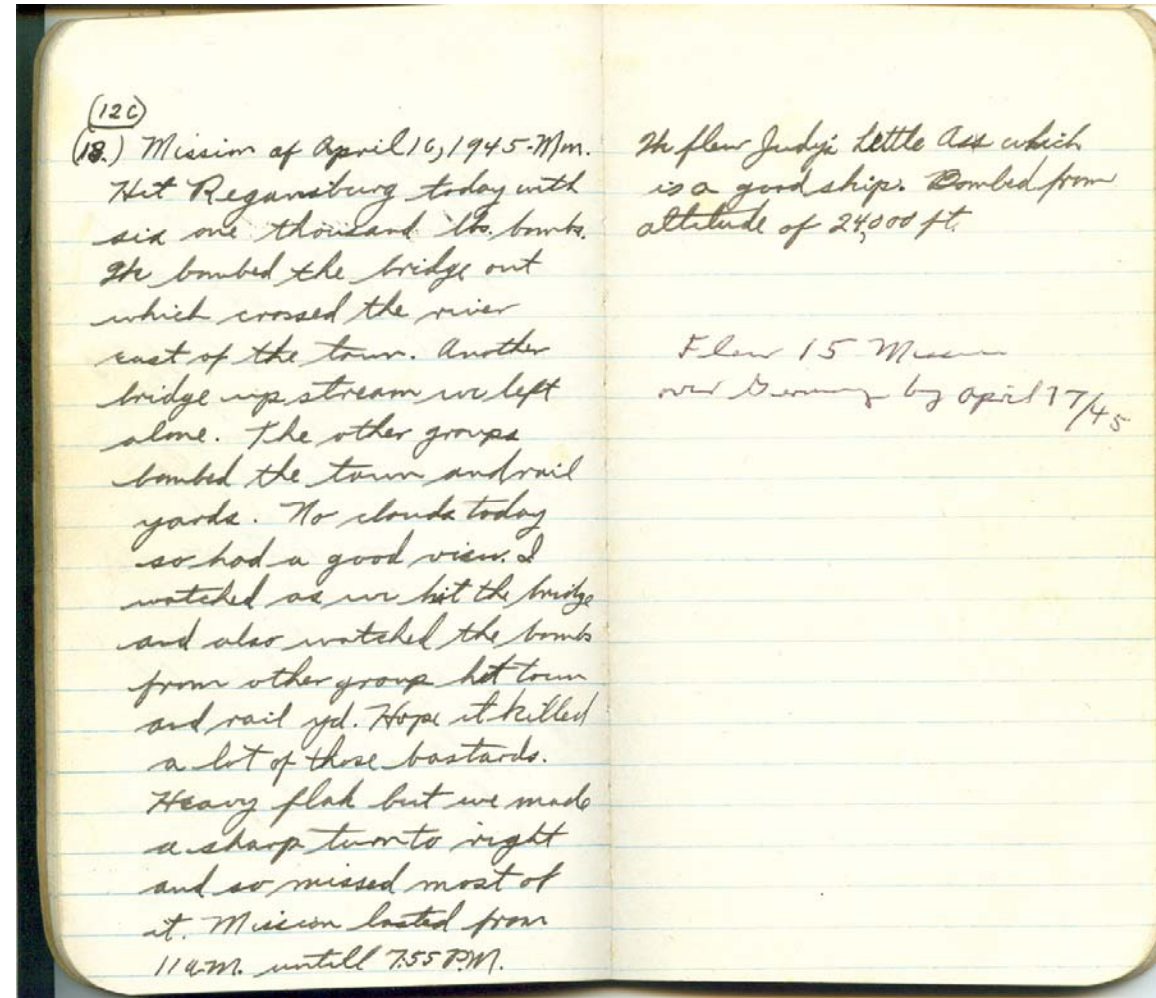 (12C)
(18.) Mission of April 16, 1945-Mon.
Hit Regansburg today with
six one thousand lbs. bombs.
We bombed the bridge out
which crossed the river
east of the town. Another
bridge up stream we left
alone. The other groups
bombed the town and rail
yards. No clouds today
so had a good view. I
watched as we hit the bridge
and also watched the bombs
from other group hit town
and rail yd. Hope it killed
a lot of those bastards.
Heavy flak but we made
a sharp turn to right
and so missed most of
it. Mission lasted from
11 a.m. untill 7:55 P.M.
We flew Judy's Little Ass which
is a good ship. Bombed from
altitude of 24,000 ft.
Flew 15 Mission
over Germany by April 17/45